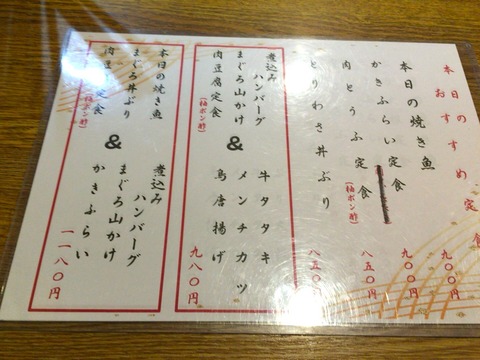 本日のおすすめ定食
本日の焼き魚 九〇〇円
かきふらい定食 九〇〇円
肉とうふ定食(柚ポン酢) 八五〇円
とりわさ丼ぶり 八五〇円
煮込みハンバーグ
まぐろ山かけ
肉豆腐定食(柚ポン酢)
&
牛タタキ
メンチカツ
鳥唐揚げ
九八〇円
本日の焼き魚
まぐろ丼ぶり
肉豆腐定食(柚ポン酢)
&
煮込みハンバーグ
まぐろ山かけ
かきふらい
一一八〇円